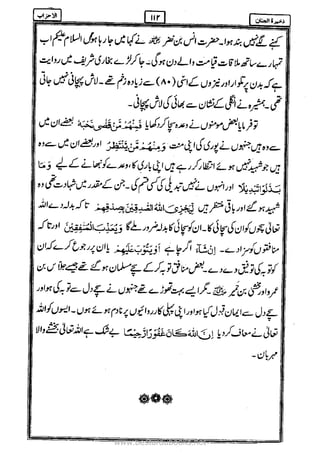 ذخیرۃ الجنان ۱۱۲ الاحزاب
کہنے لگے نہیں بند ہوا۔ حضرت انس بن نضر رضی اللہ عنہ نے کہا میں جا رہا ہوں السلام علیکم اب
تمہارے ساتھ ملاقات قیامت والے دن ہوگی۔ جا کر لڑے بخاری شریف میں روایت
ہے کہ بدن پر تلوار اور نیزوں کے اسّی (۸۰) سے زیادہ زخم تھے۔ لاش پہچانی نہیں جاتی
تھی۔ ہمشیرہ نے انگلی کے نشان سے بھائی کی لاش پہچانی۔
تو فرمایا بعض مومنوں نے وعدہ سچا کر دکھایا فَمِنْهُمْ مَّنْ قَضٰى نَحْبَهٗ بعض ان میں
سے وہ ہیں جنہوں نے پوری کی اپنی منت وَمِنْهُمْ مَّنْ يَّنْتَظِرُ اور بعض ان میں سے وہ
ہیں جو شہید نہیں ہوئے انتظار کر رہے ہیں اپنی باری کا، وعدے کو نبھانے کے لیے وَمَا
بَدَّلُوْا تَبْدِيْلًا اور انہوں نے نہیں تبدیلی کی کسی قسم کی۔ جن کے مقدر میں شہادت تھی وہ
شہید ہو گئے اور باقی منتظر ہیں لِّيَجْزِيَ اللّٰهُ الصّٰدِقِيْنَ بِصِدْقِهِمْ تاکہ بدلہ دے اللہ
تعالیٰ سچوں کو ان کی سچائی کا۔ ان کو سچائی کا بدلہ ضرور ملے گا وَيُعَذِّبَ الْمُنٰفِقِيْنَ اور تاکہ
منافقوں کو سزا دے۔ اِنْ شَآءَ اگر چاہے اَوْ يَتُوْبَ عَلَيْهِمْ یا ان پر رجوع کرے کہ ان
کو توبہ کی توفیق دے دے۔ بعض منافق توبہ کر کے سچے مسلمان ہو گئے تھے جیسے جلاس بن
عمرو اور مخشی بن حمیر رضی اللہ عنہما۔ مگر ایسے بہت تھوڑے تھے جنہوں نے سچے دل سے توبہ کی ہو اور
سچے دل سے ایمان قبول کیا ہو اور اپنی پہلی کارروائیوں پر نادم ہوئے ہوں۔ ایسوں کو اللہ
تعالیٰ نے معاف کر دیا اِنَّ اللّٰهَ كَانَ غَفُوْرًا رَّحِيْمًا بے شک ہے اللہ تعالیٰ بخشنے والا
مہربان۔